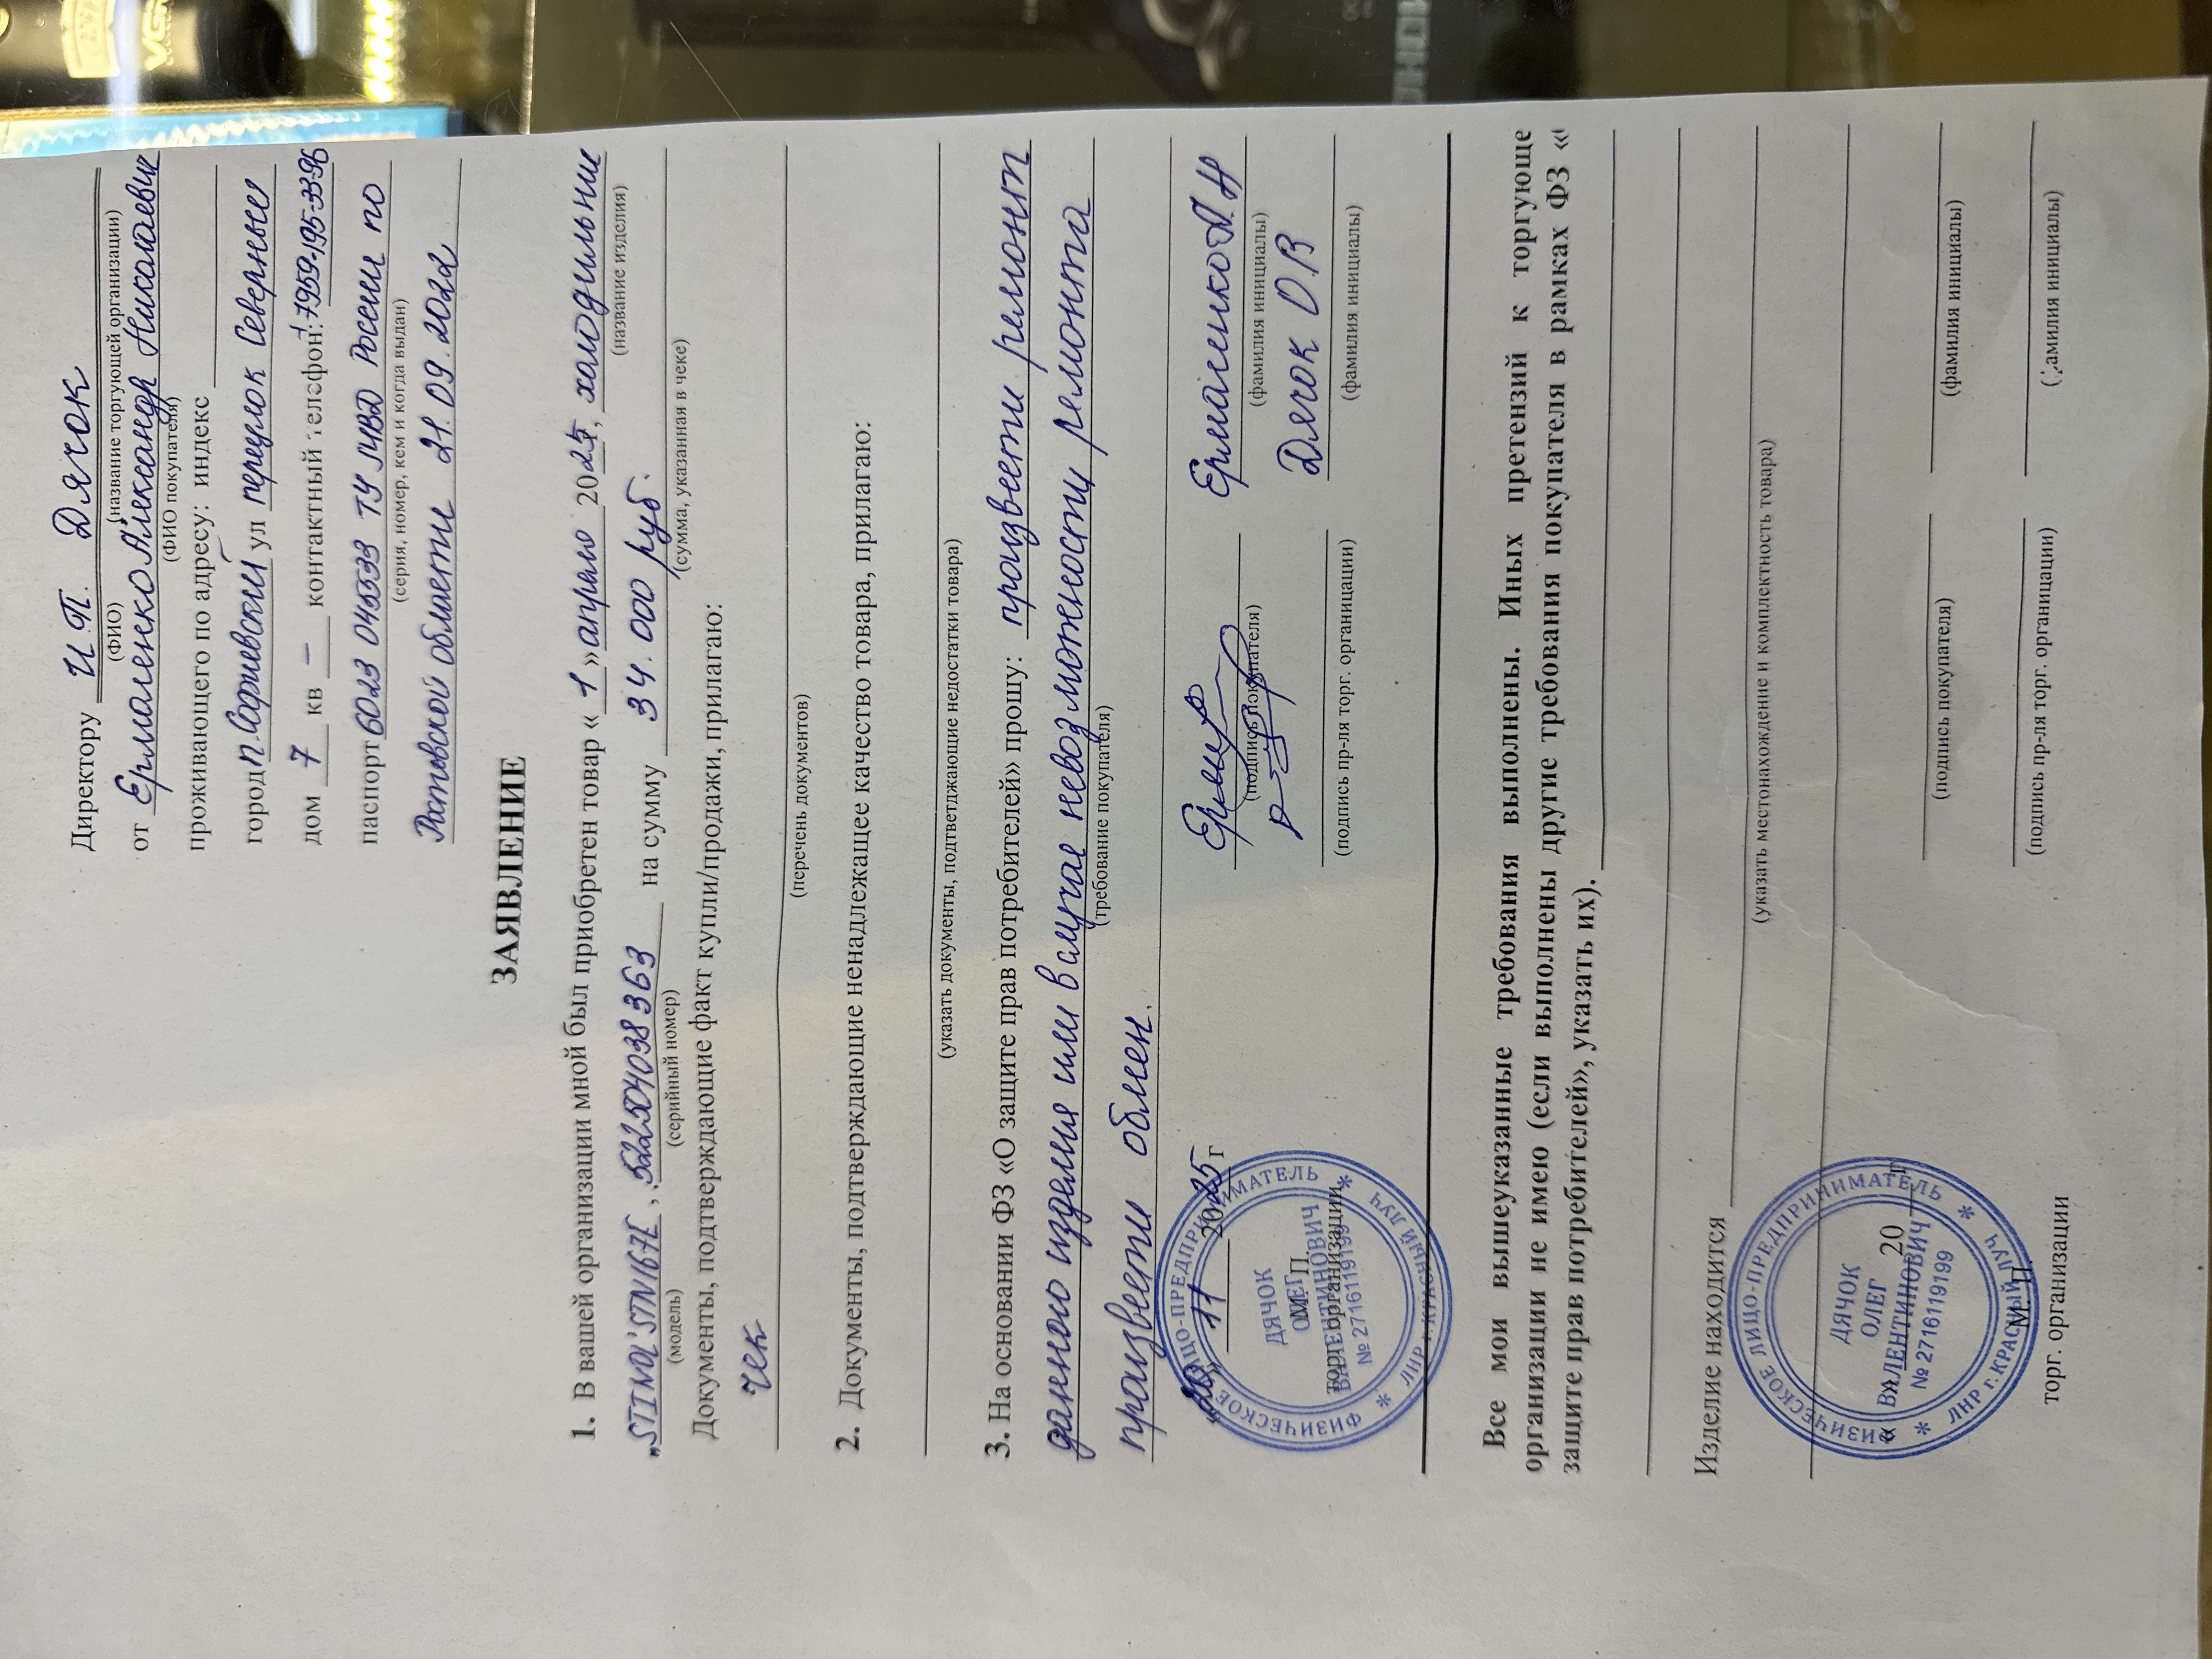 Директору И.П. Дячок
(ФИО) (название торгующей организации)
от Ермаленко Александр Николаевич
(ФИО покупателя)
проживающего по адресу: индекс
город п. Софиевский ул переулок Северный
дом 7 кв — контактный телефон: +7959-195-33-96
паспорт 6023 045533 ТУ МВД Росеии по
(серия, номер, кем и когда выдан)
Ростовской области 21.09.2022
ЗАЯВЛЕНИЕ
1. В вашей организации мной был приобретен товар « 1 » апреля 2025, холодильник
(название изделия)
„STINOL" STN167E , 522504038363 на сумму 34.000 руб.
(модель) (серийный номер) (сумма, указанная в чеке)
Документы, подтверждающие факт купли/продажи, прилагаю:
чек
(перечень документов)
2. Документы, подтверждающие ненадлежащее качество товара, прилагаю:
(указать документы, подтветджающие недостатки товара)
3. На основании ФЗ «О защите прав потребителей» прошу: произвести ремонт
данного изделия или в случае невозможности ремонта
(требование покупателя)
произвести обмен.
«20» 11 2025 г
Ермаленко А.Н
(подпись покупателя) (фамилия инициалы)
М.П.
торг. организации
Дячок О.В
(подпись пр-ля торг. органицации) (фамилия инициалы)
ФИЗИЧЕСКОЕ ЛИЦО-ПРЕДПРИНИМАТЕЛЬ
ЛНР г. КРАСНЫЙ ЛУЧ
ДЯЧОК
ОЛЕГ
ВАЛЕНТИНОВИЧ
№ 2716119199
Все мои вышеуказанные требования выполнены. Иных претензий к торгующе
организации не имею (если выполнены другие требования покупателя в рамках ФЗ «
защите прав потребителей», указать их).
Изделие находится
(указать местонахождение и комплектность товара)
« » 20 г
(подпись покупателя) (фамилия инициалы)
М.П.
торг. организации
(подпись пр-ля торг. органицации) (фамилия инициалы)
ФИЗИЧЕСКОЕ ЛИЦО-ПРЕДПРИНИМАТЕЛЬ
ЛНР г. КРАСНЫЙ ЛУЧ
ДЯЧОК
ОЛЕГ
ВАЛЕНТИНОВИЧ
№ 2716119199
VGR